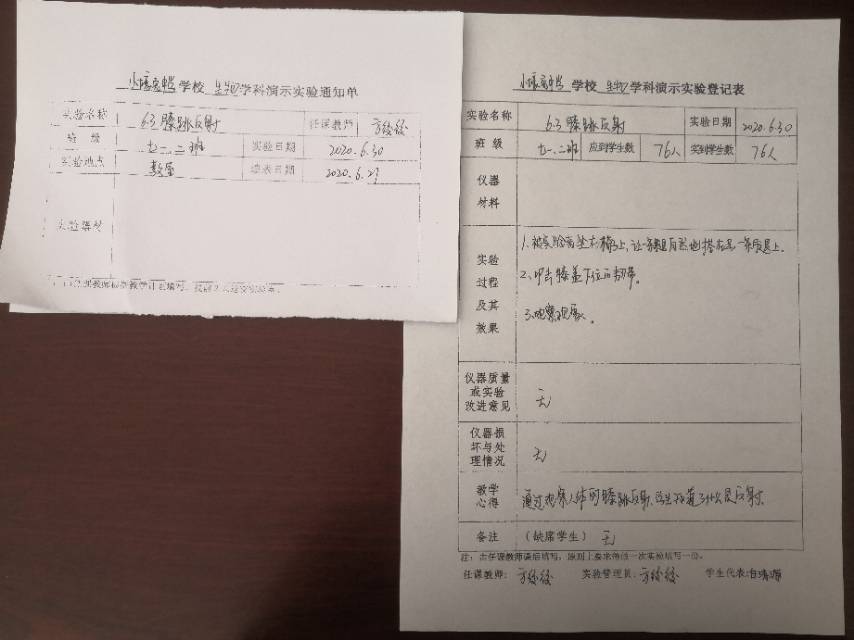 学校 生物学科演示实验通知单
实验名称 6.3膝跳反射 任课教师
班 级 七一、二班 实验日期 2020.6.30
实验地点 教室 填表日期 2020.6.27
实验器材
学校 生物学科演示实验登记表
实验名称 6.3膝跳反射 实验日期 2020.6.30
班 级 七一、二班 应到学生数 76人 实到学生数 76人
仪器
材料
实验
过程
及其
效果
1.被实验者坐在椅子上,让一条腿自然地搭在另一条腿上。
2.叩击膝盖下位的韧带。
3.观察现象。
仪器质量
或实验
改进意见
无
仪器损
坏与处
理情况
无
教学
心得
通过观察人体的膝跳反射,学生知道了什么是反射。
备注 (缺席学生) 无
注:由任课教师课后填写,原则上要求每做一次实验填写一份。
任课教师: 实验管理员: 学生代表: